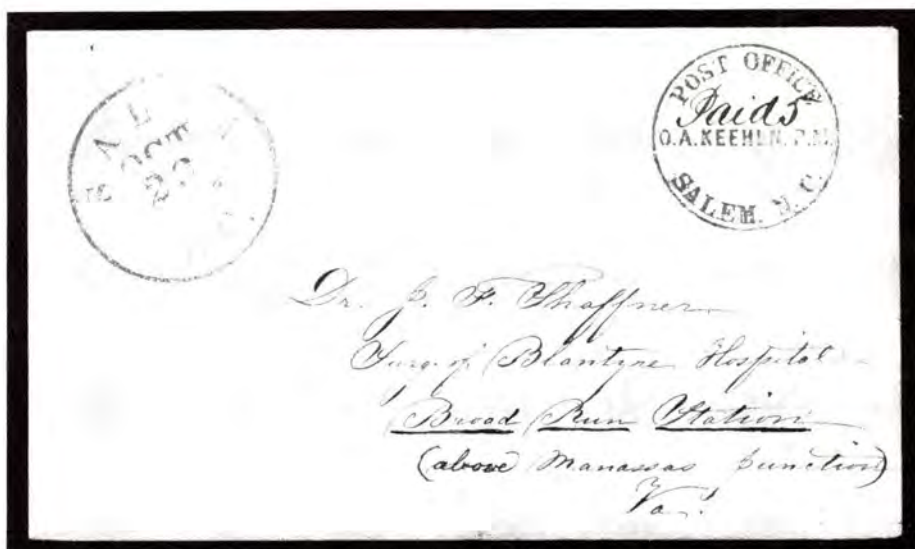 SALEM
OCT
29
N.C.
POST OFFICE
Paid 5
O.A. KEEHLN. P.M.
SALEM. N. C.
Dr. J. F. Shaffner
Surg. of Blantyre Hospital
Broad Run Station
(above Manassas Junction)
Va.